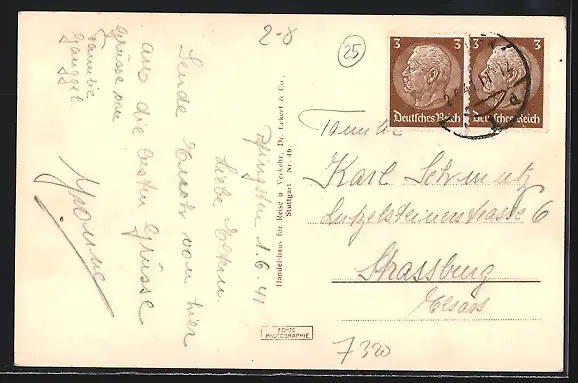 2-8
25
3
3
Deutsches Reich
Deutsches Reich
Pfingsten 1.6.41
Liebe Eltern
Sende Euch von hier
aus die ersten Grüsse
Grüsse von
Familie
Yvonne
Handelshaus für Reise u. Verkehr, Dr. Eckert & Co.,
Stuttgart Nr. 46.
ECHTE
PHOTOGRAPHIE
Familie
Karl Schmutz
Lutzelsteinerstrasse 6
Strassburg
Elsass
7320